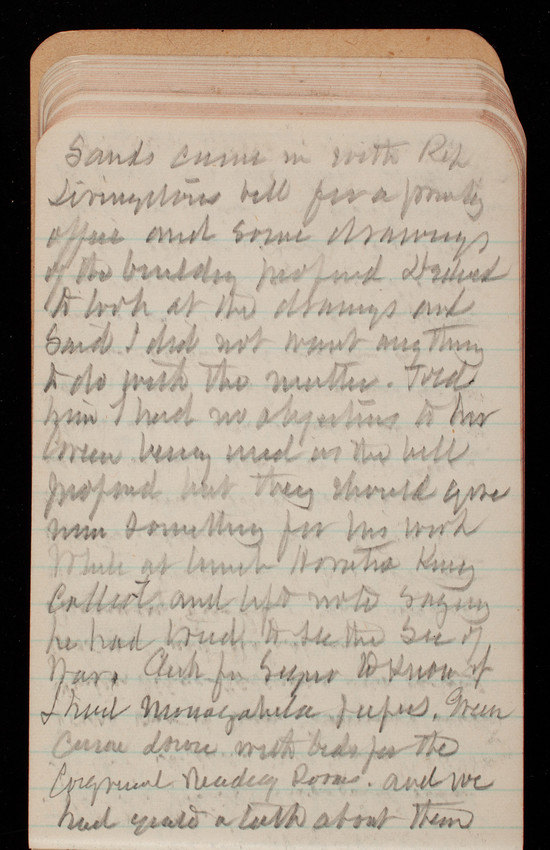 Sands came in with Rep
Livingstons bill for a printing
office and some drawings
of the building proposed I refused
to look at the drawings and
said I did not want anything
to do with the matter. Told
him I had no objections to his
Green being used in the bill
proposed but they should give
him something for his work
While at lunch Horatio King
Called, and left note saying
he had tried to see the Sec of
War. Clerk for to know if
I had Monongahela papers. Green
Came down with bids for the
Congressional Reading Rooms. and we
had quite a talk about them